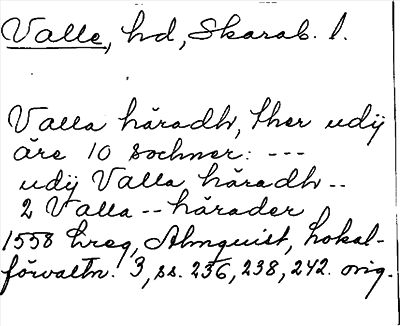 Valle, hd, Skarab. l.
Valla häradh, ther udij
äre 10 sochner: ---
udij Valla häradh --
2 Valla -- härader
1558 Lreg, Almquist, Lokal-
förvaltn. 3, ss. 236, 238, 242. orig.